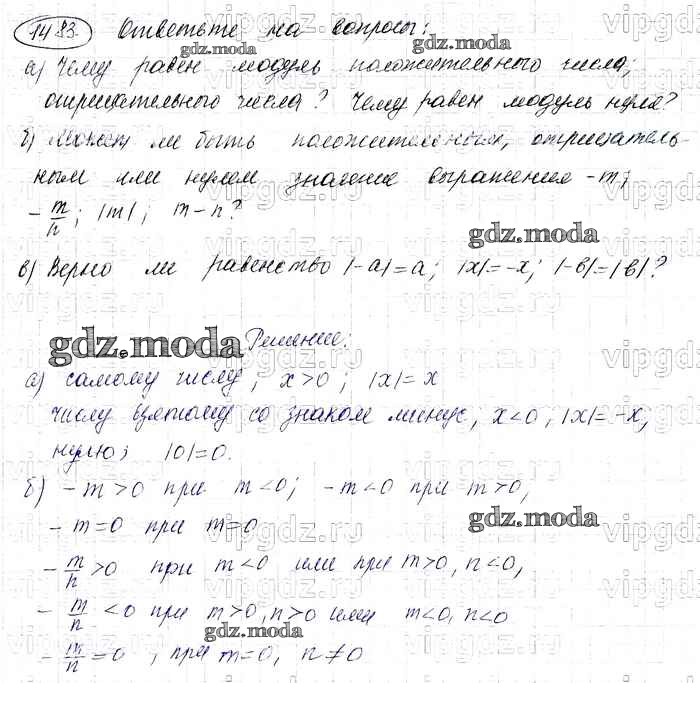 1483. Ответьте на вопросы:
а) Чему равен модуль положительного числа;
отрицательного числа? Чему равен модуль нуля?
б) Может ли быть положительным, отрицатель-
ным или нулем значение выражения -m;
- m/n; |m|; m - n?
в) Верно ли равенство |-a| = a; |x| = -x; |-в| = |в|?
Решение:
а) самому числу; x > 0; |x| = x
числу взятому со знаком минус, x < 0, |x| = -x,
нулю; |0| = 0.
б) - m > 0 при m < 0; - m < 0 при m > 0,
- m = 0 при m = 0
- m/n > 0 при m < 0 или при m > 0, n < 0,
- m/n < 0 при m > 0, n > 0 или m < 0, n < 0
- m/n = 0, при m = 0, n ≠ 0
gdz.moda
vipgdz.ru